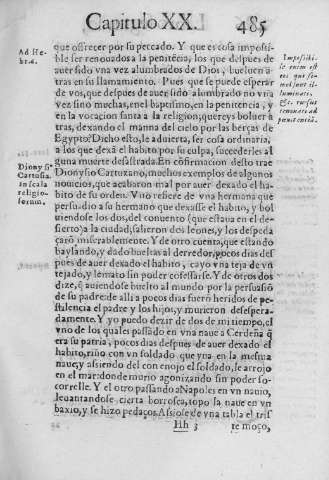 Capitulo XX. 485
Ad He-
bræ.
que ofrecer por su peccado. Y que es cosa imposi-
ble ser renouados a la penitẽcia, los que despues de
auer sido vna vez alumbrados de Dios, bueluen a-
tras en su llamamiento. Pues que se puede esperar
de vos, que despues de auer sido alumbrado no vna
vez sino muchas, en el baptismo, en la penitencia, y
en la vocacion santa a la religion, quereys boluer a
tras, dexando el manna del cielo por las berças de
Egypto? Dicho esto, le aduierta, ser cosa ordinaria,
a los que dexã el habito por su culpa, sucederles al
guna muerte desastrada. En cõfirmacion desto trae
Dionysio Cartuxano, muchos exemplos de algunos
nouicios, que acabaron mal por auer dexado el ha-
bito de su orden. Vno refiere de vna hermana que
persuadio a su hermano que dexasse el habito, y bol
uiendose los dos, del conuento (que estaua en el de-
sierto) a la ciudad, salieron dos leones, y los despeda
çarõ miserablemente. Y de otro cuenta, que estando
baylando, y dado bueltas al derredor, pocos dias des
pues de auer dexado el habito, cayo vna teja de vn
tejado, y lo mato sin poder cõfessarse. Y de otros dos
dize, q̃ auiendose buelto al mundo por la persuasiõ
de su padre: de alli a pocos dias fuerõ heridos de pe-
stilencia el padre y los hijos, y murieron desespera-
damente. Y yo puedo dezir de dos de mi tiempo, el
vno de los quales passãdo en vna naue a Cerdeña q̃
era su patria, pocos dias despues de auer dexado el
habito, riño con vn soldado que yua en la mesma
naue, y assiendo del con enojo el soldado, le arrojo
en el mar: donde murio agonizando sin poder so-
correlle. Y el otro passando a Napoles en vn nauio,
leuantandose cierta borrosca, topo la naue en vn
baxio, y se hizo pedaços. Assiose de vna tabla el tris
Hh 3 te moço,
Impossibi-
le enim est
eos qui se-
mel sunt il-
luminati,
&c. rursus
renouari ad
pœnitentiã.
Dionys sio
Cartusia.
in scala
religio-
sorum.